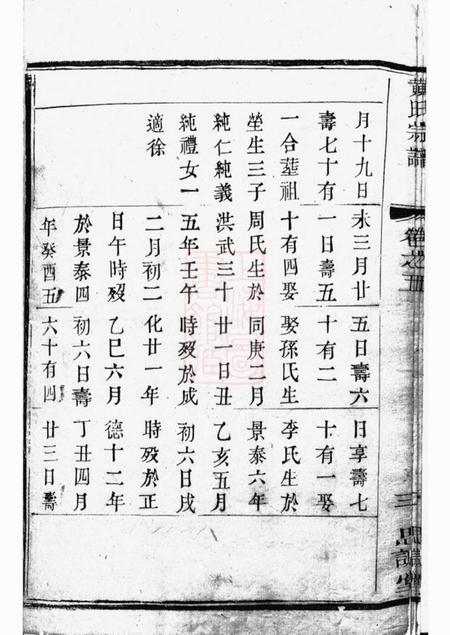 黃氏宗譜
卷之五
三
月十九日
壽七十有
一合塟祖
塋生三子
純仁純義
純禮女一
適徐
未三月廿
一日壽五
十有四娶
周氏生於
洪武三十
五年壬午
二月初二
日午時歿
於景泰四
年癸酉五
五日壽六
十有二
娶孫氏生
同庚二月
廿一日丑
時歿於成
化廿一年
乙巳六月
初六日壽
六十有四
日享壽七
十有一娶
李氏生於
景泰六年
乙亥五月
初六日戌
時歿於正
德十二年
丁丑四月
廿三日壽